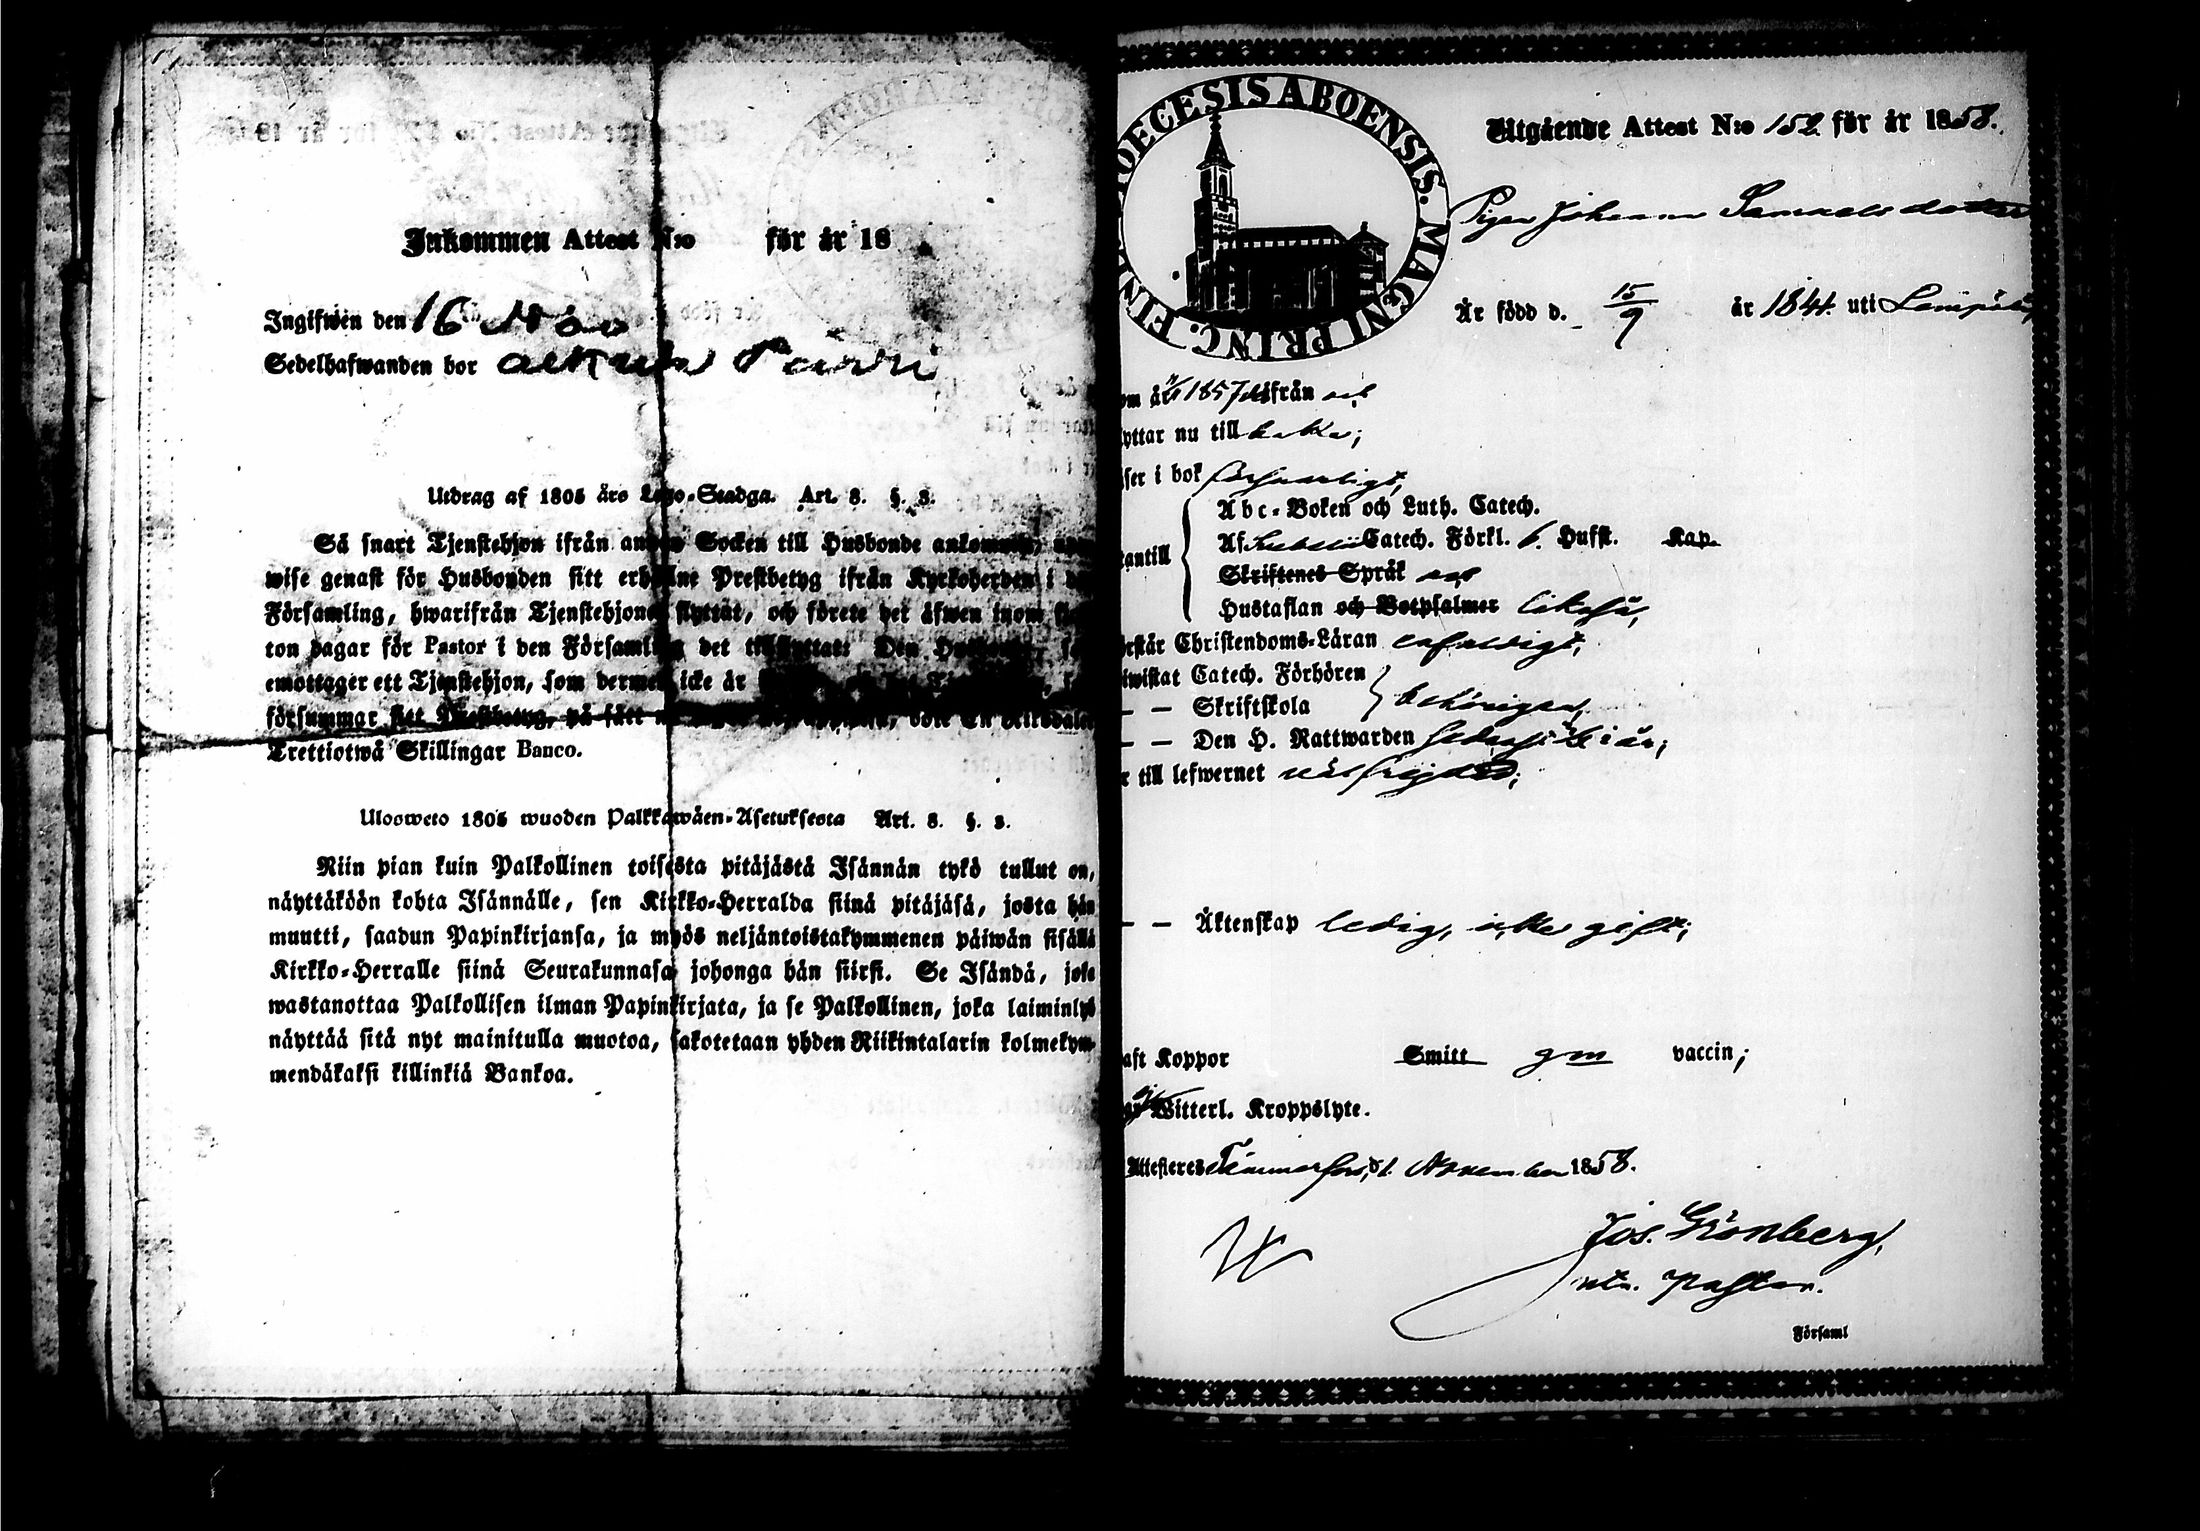 Inkommen Attest N:o för år 18
Ingifwen den 16 Nov
Sedelhafwanden bor
Utdrag af 1805 års Lego-Stadga. Art. 8. §. 3.
Så snart Tjenstehjon ifrån annan Socken till Husbonde ankommit,
wise genast för Husbonden sitt erhållne Prestbetyg ifrån Kyrkoherden i
Församling, hwarifrån Tjenstehjonet flyttat, och förete det äfwen inom
ton dagar för Pastor i den Församling det tillflyttat: Den
emottager ett Tjenstehjon, som dermed icke är
försummar sitt Prestbetyg, på sätt böte En Riksdaler
Trettiotwå Skillingar Banco.
Ulosweto 1805 wuoden Palkkawäen-Asetuksesta Art. 8. §. 3.
Niin pian kuin Palkollinen toisesta pitäjästä Isännän tykö tullut on,
näyttäköön kohta Isännälle, sen Kirkko-Herralda siinä pitäjäsä, josta hän
muutti, saadun Papinkirjansa, ja myös neljäntoistakymmenen päiwän sisällä
Kirkko-Herralle siinä Seurakunnasa johonga hän siirsi. Se Isändä, joka
wastanottaa Palkollisen ilman Papinkirjata, ja se Palkollinen, joka laiminlyö
näyttää sitä nyt mainitulla muotoa, sakotetaan yhden Riikintalarin kolmekym-
mendäkaksi killinkiä Bankoa.
DIOECESIS ABOENSIS. MAGNI PRINC. FINL
Utgående Attest N:o 152 för år 1858.
Pigan Johanna Samuelsdotter
Är född d. 15/9 år 1841 uti Lempälä,
om år 1857 ifrån
yttar nu till
ser i bok försvarligt,
Abc-Boken och Luth. Catech.
Af Svebelii Catech. Förkl. 6. Hufst. Kap.
antill
Skriftenes Språk
Hustaflan och Botpsalmer likaså,
rstår Christendoms-Läran enfaldigt,
iwistat Catech. Förhören
— — Skriftskola behörigen,
— — Den H. Nattwarden i år;
r till lefwernet välfrejdad;
— — Äktenskap ledig, icke gift;
aft Koppor Smitt gm vaccin;
Witterl. Kroppslyte.
Attesteres Tammerfors, d 1 November 1858.
Jos. Grönberg,
Pastor.
Församl